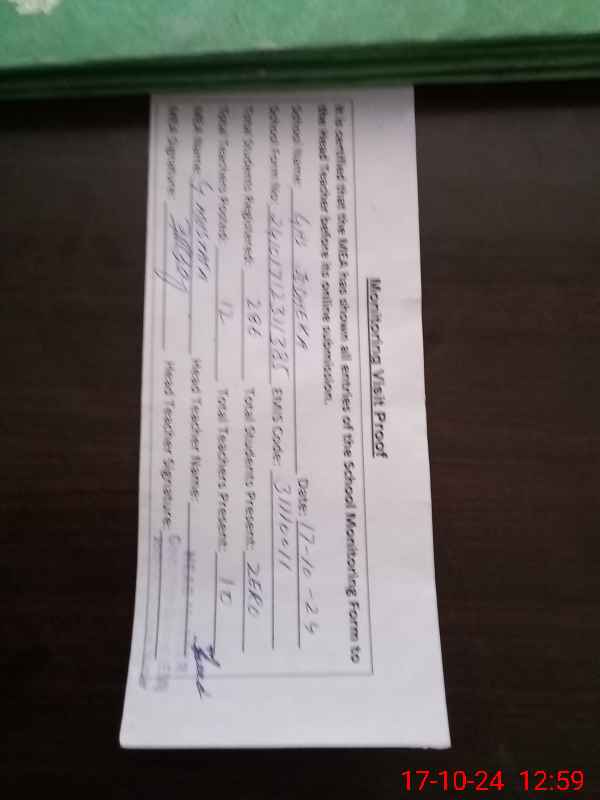 Monitoring Visit Proof
It is certified that the MEA has shown all entries of the School Monitoring Form to
the Head Teacher before its online submission.
School Name: GHS Date: 17-10-24
School Form No: 24101712311385 EMIS Code: 31110011
Total Students Registered: 286 Total Students Present: ZERO
Total Teachers Posted: 12 Total Teachers Present: 10
MEA Name: G MUSTAFA Head Teacher Name:
MEA Signature: Head Teacher Signature:
17-10-24 12:59